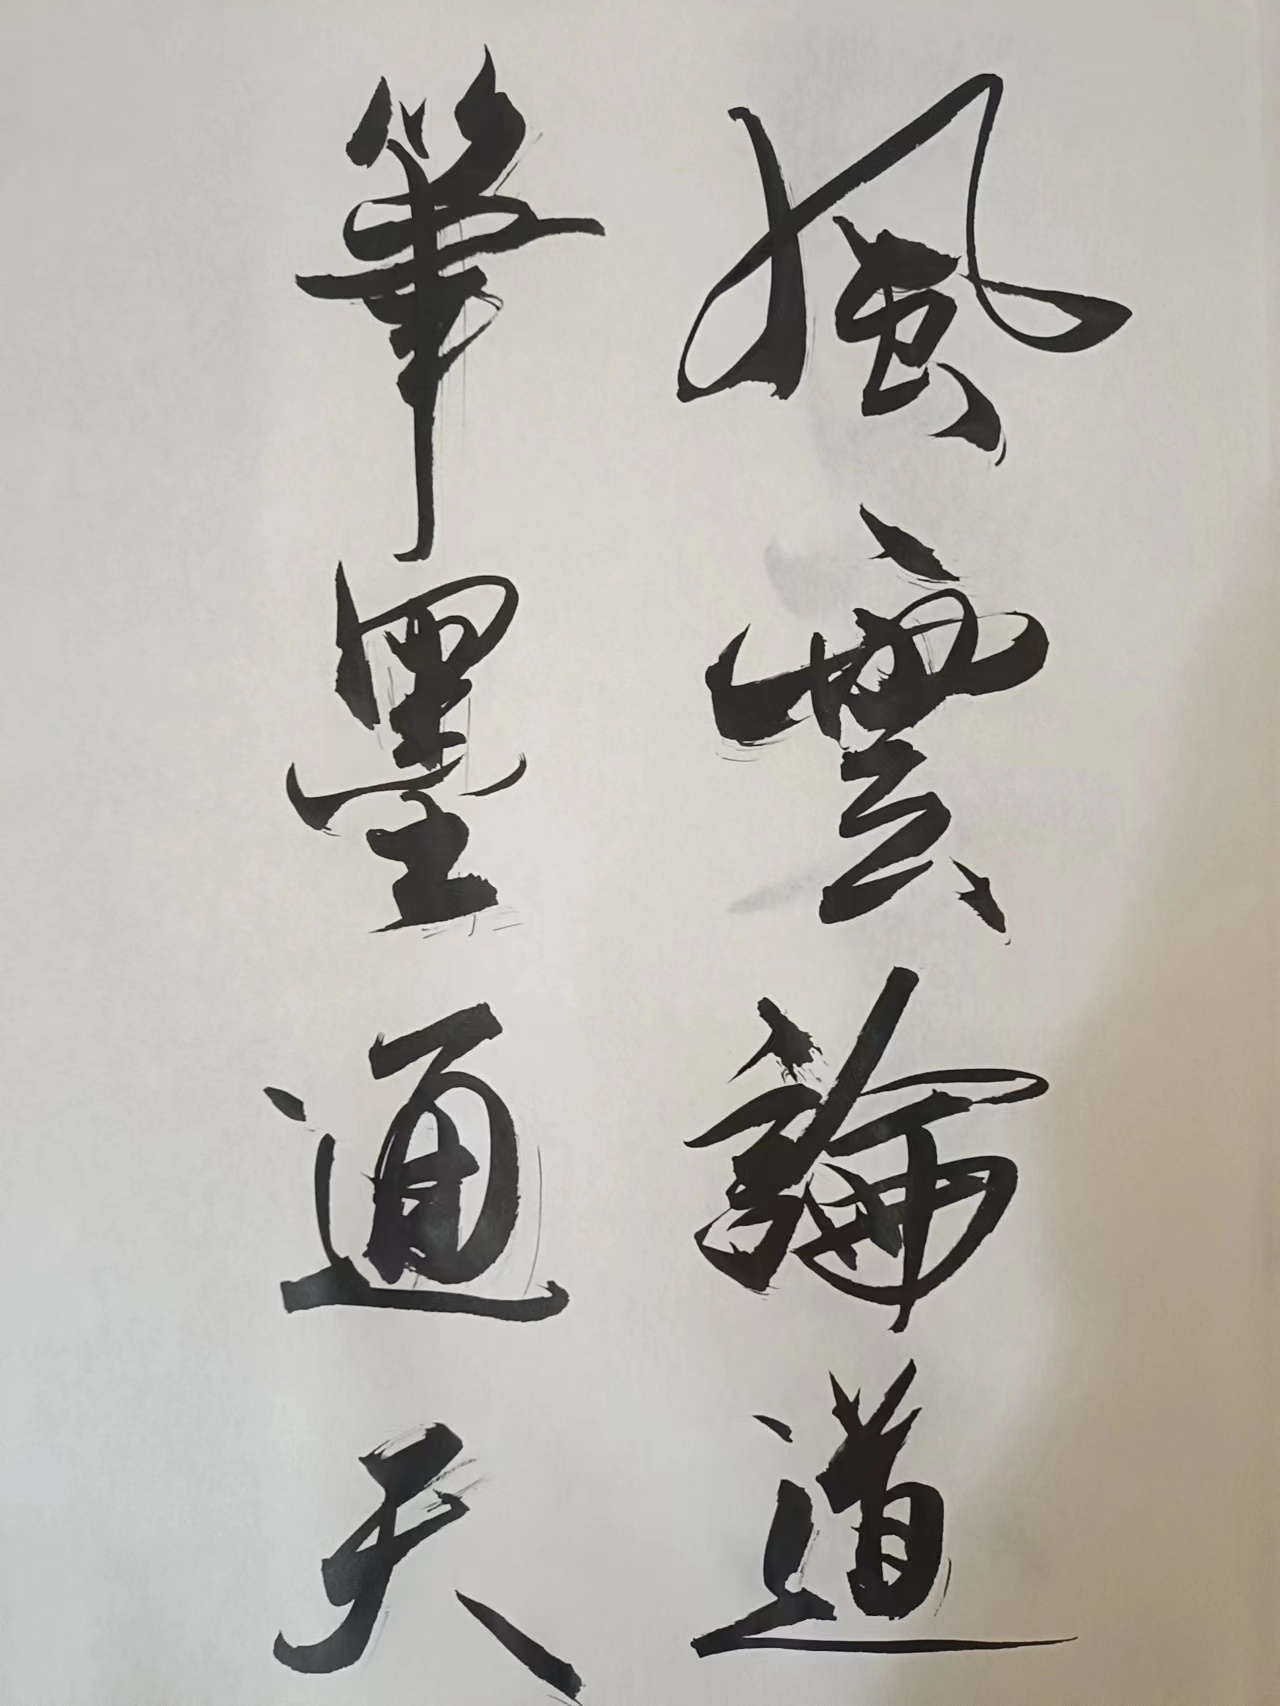 風雲論道
筆墨通天